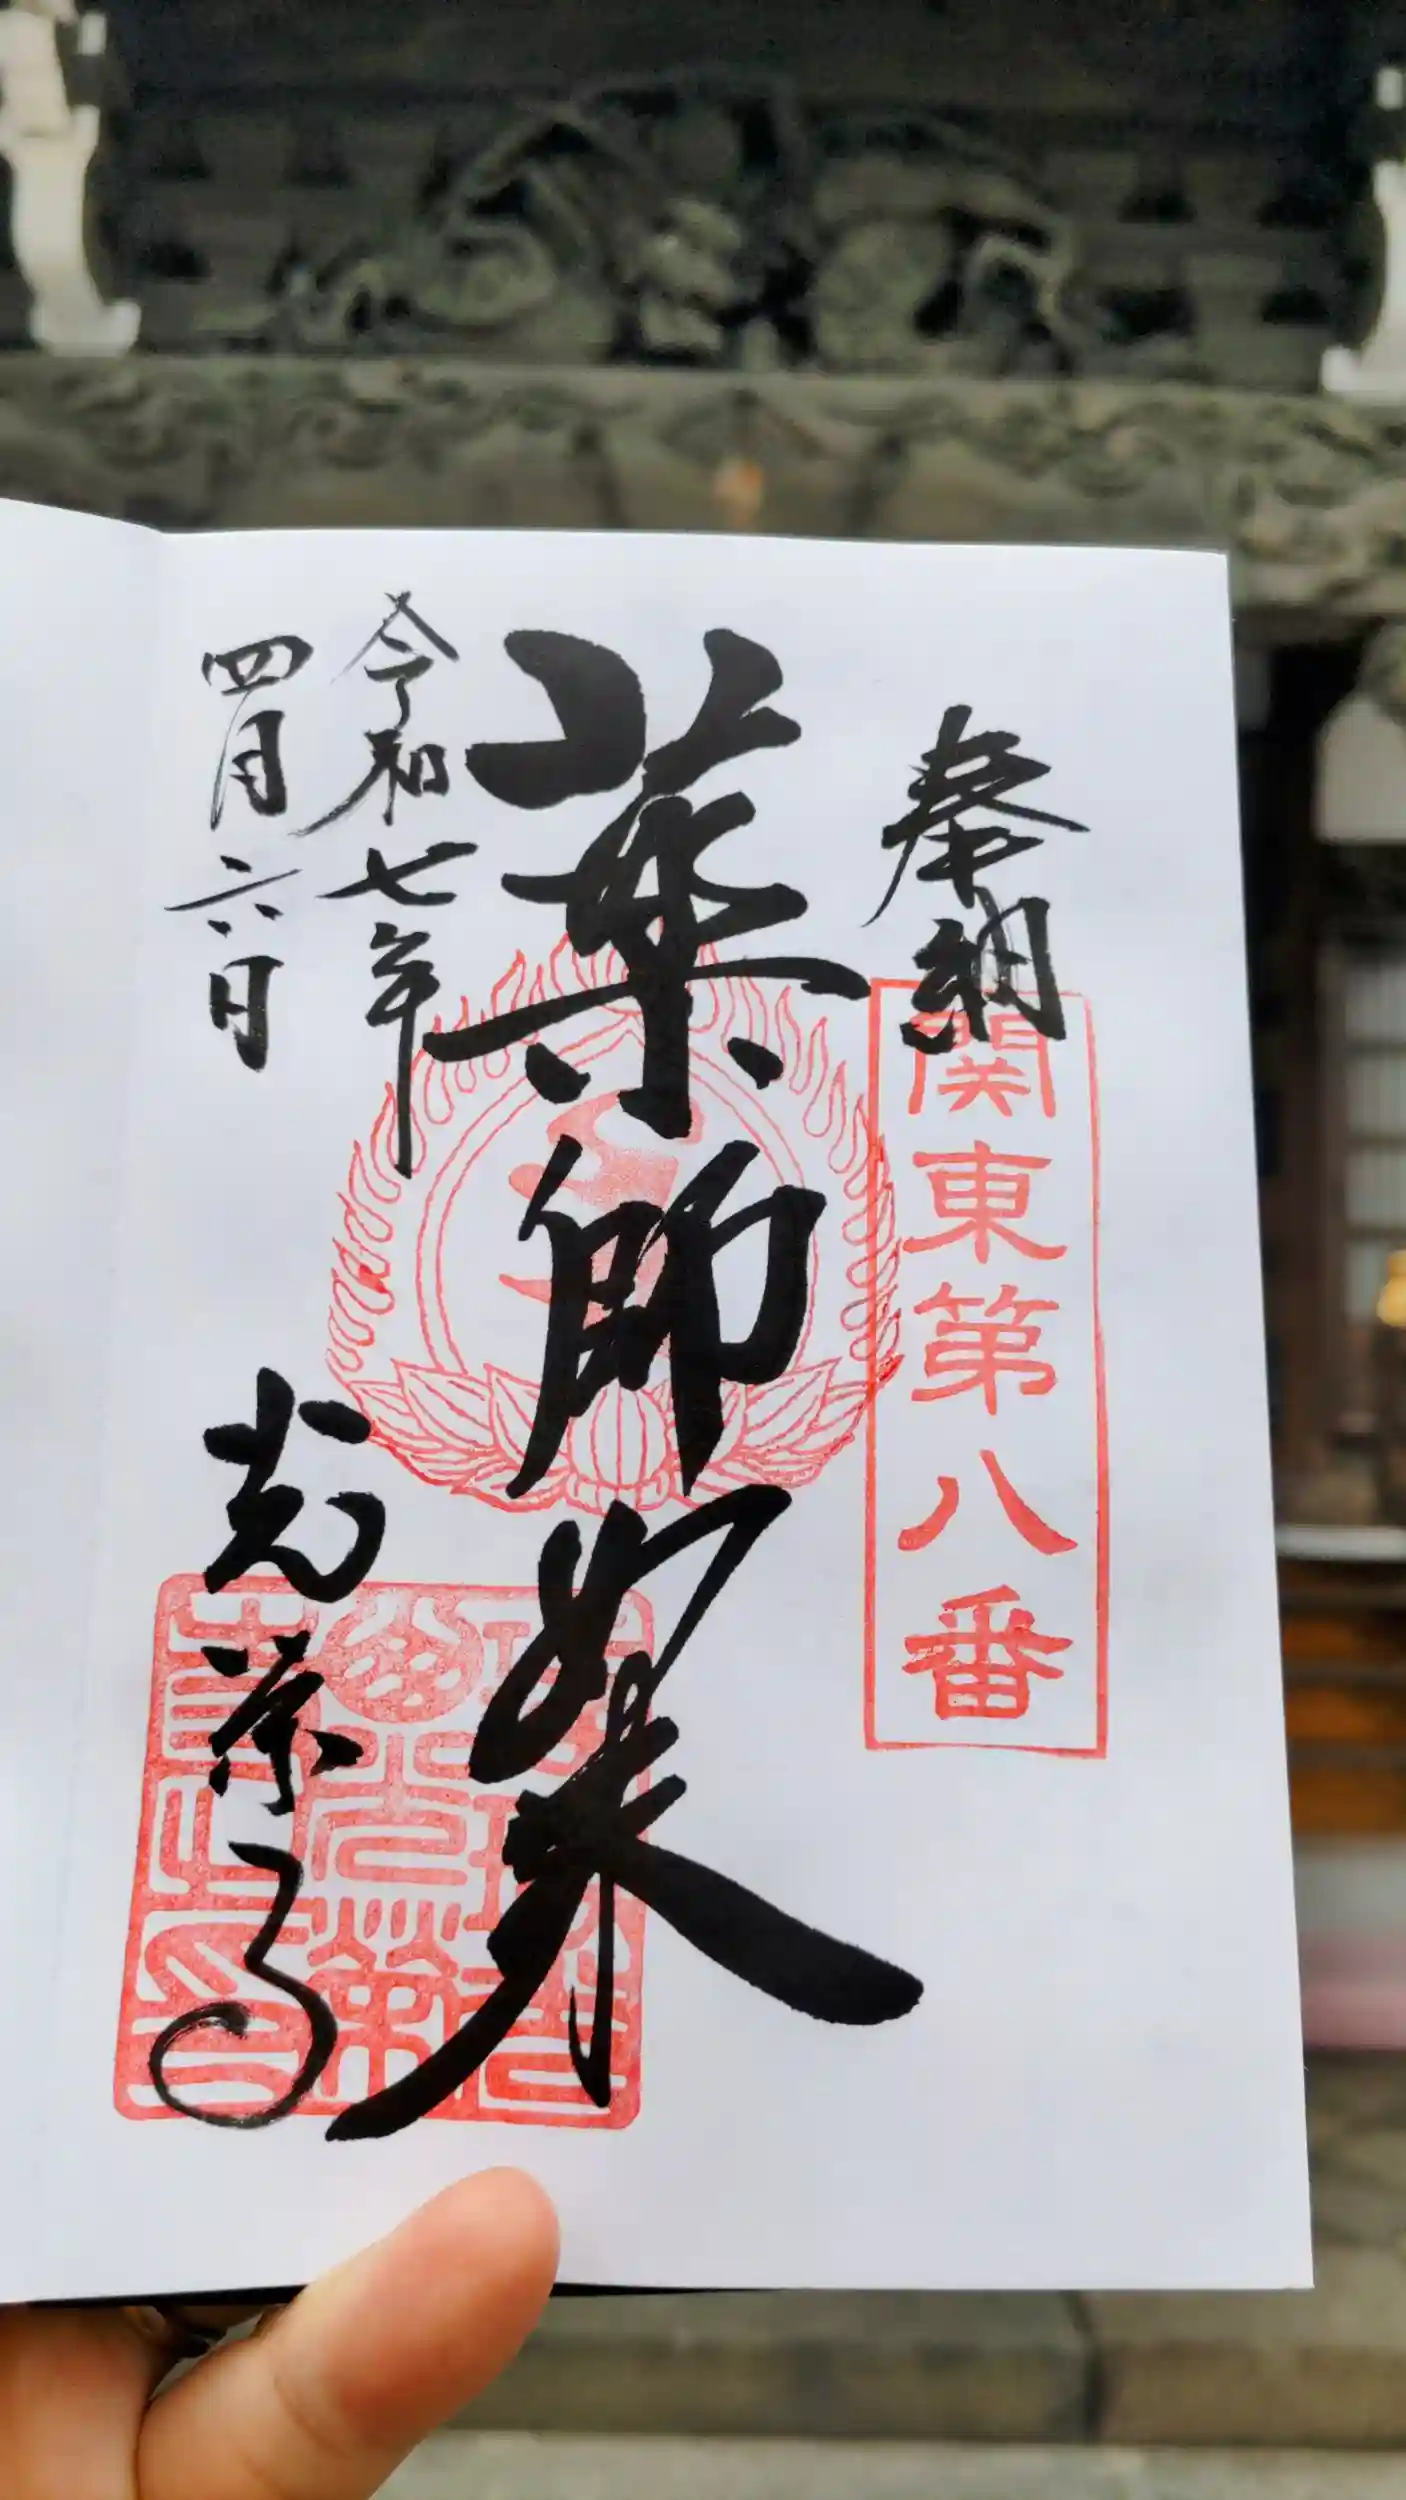 奉納
関東第八番
薬師如来
令和七年
四月六日
光榮寺